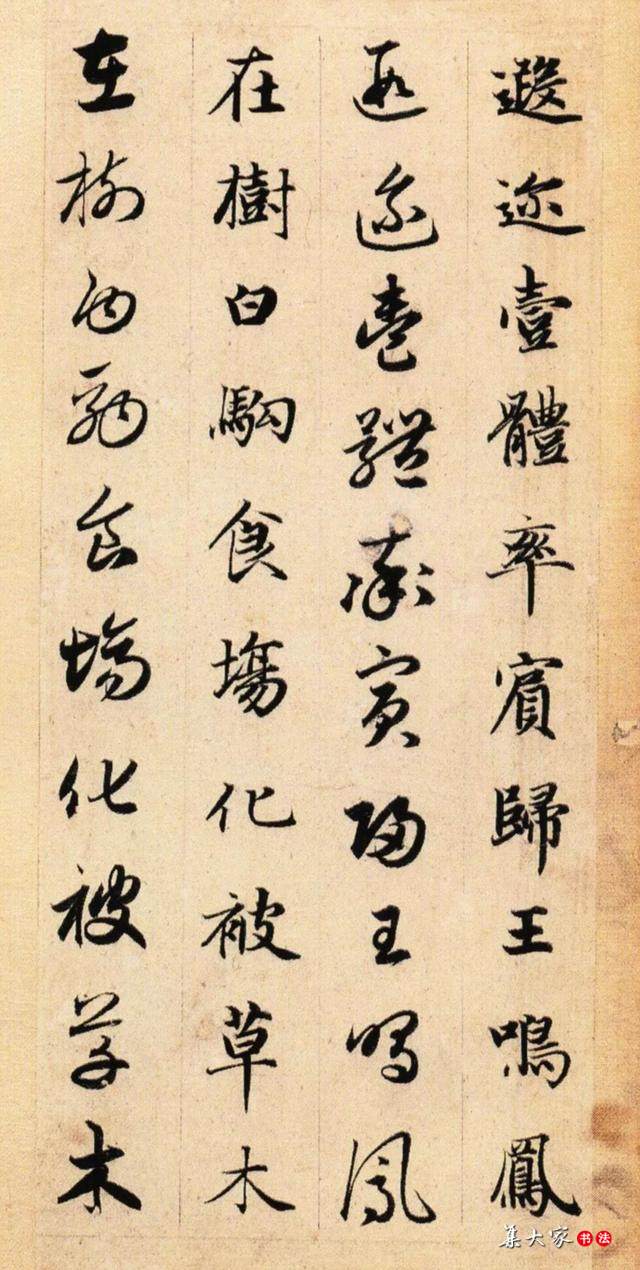 遐迩壹體率賓歸王鳴鳳
遐迩壹體率賓歸王鳴鳳
在樹白駒食場化被草木
在樹白駒食場化被草木
集大家书法